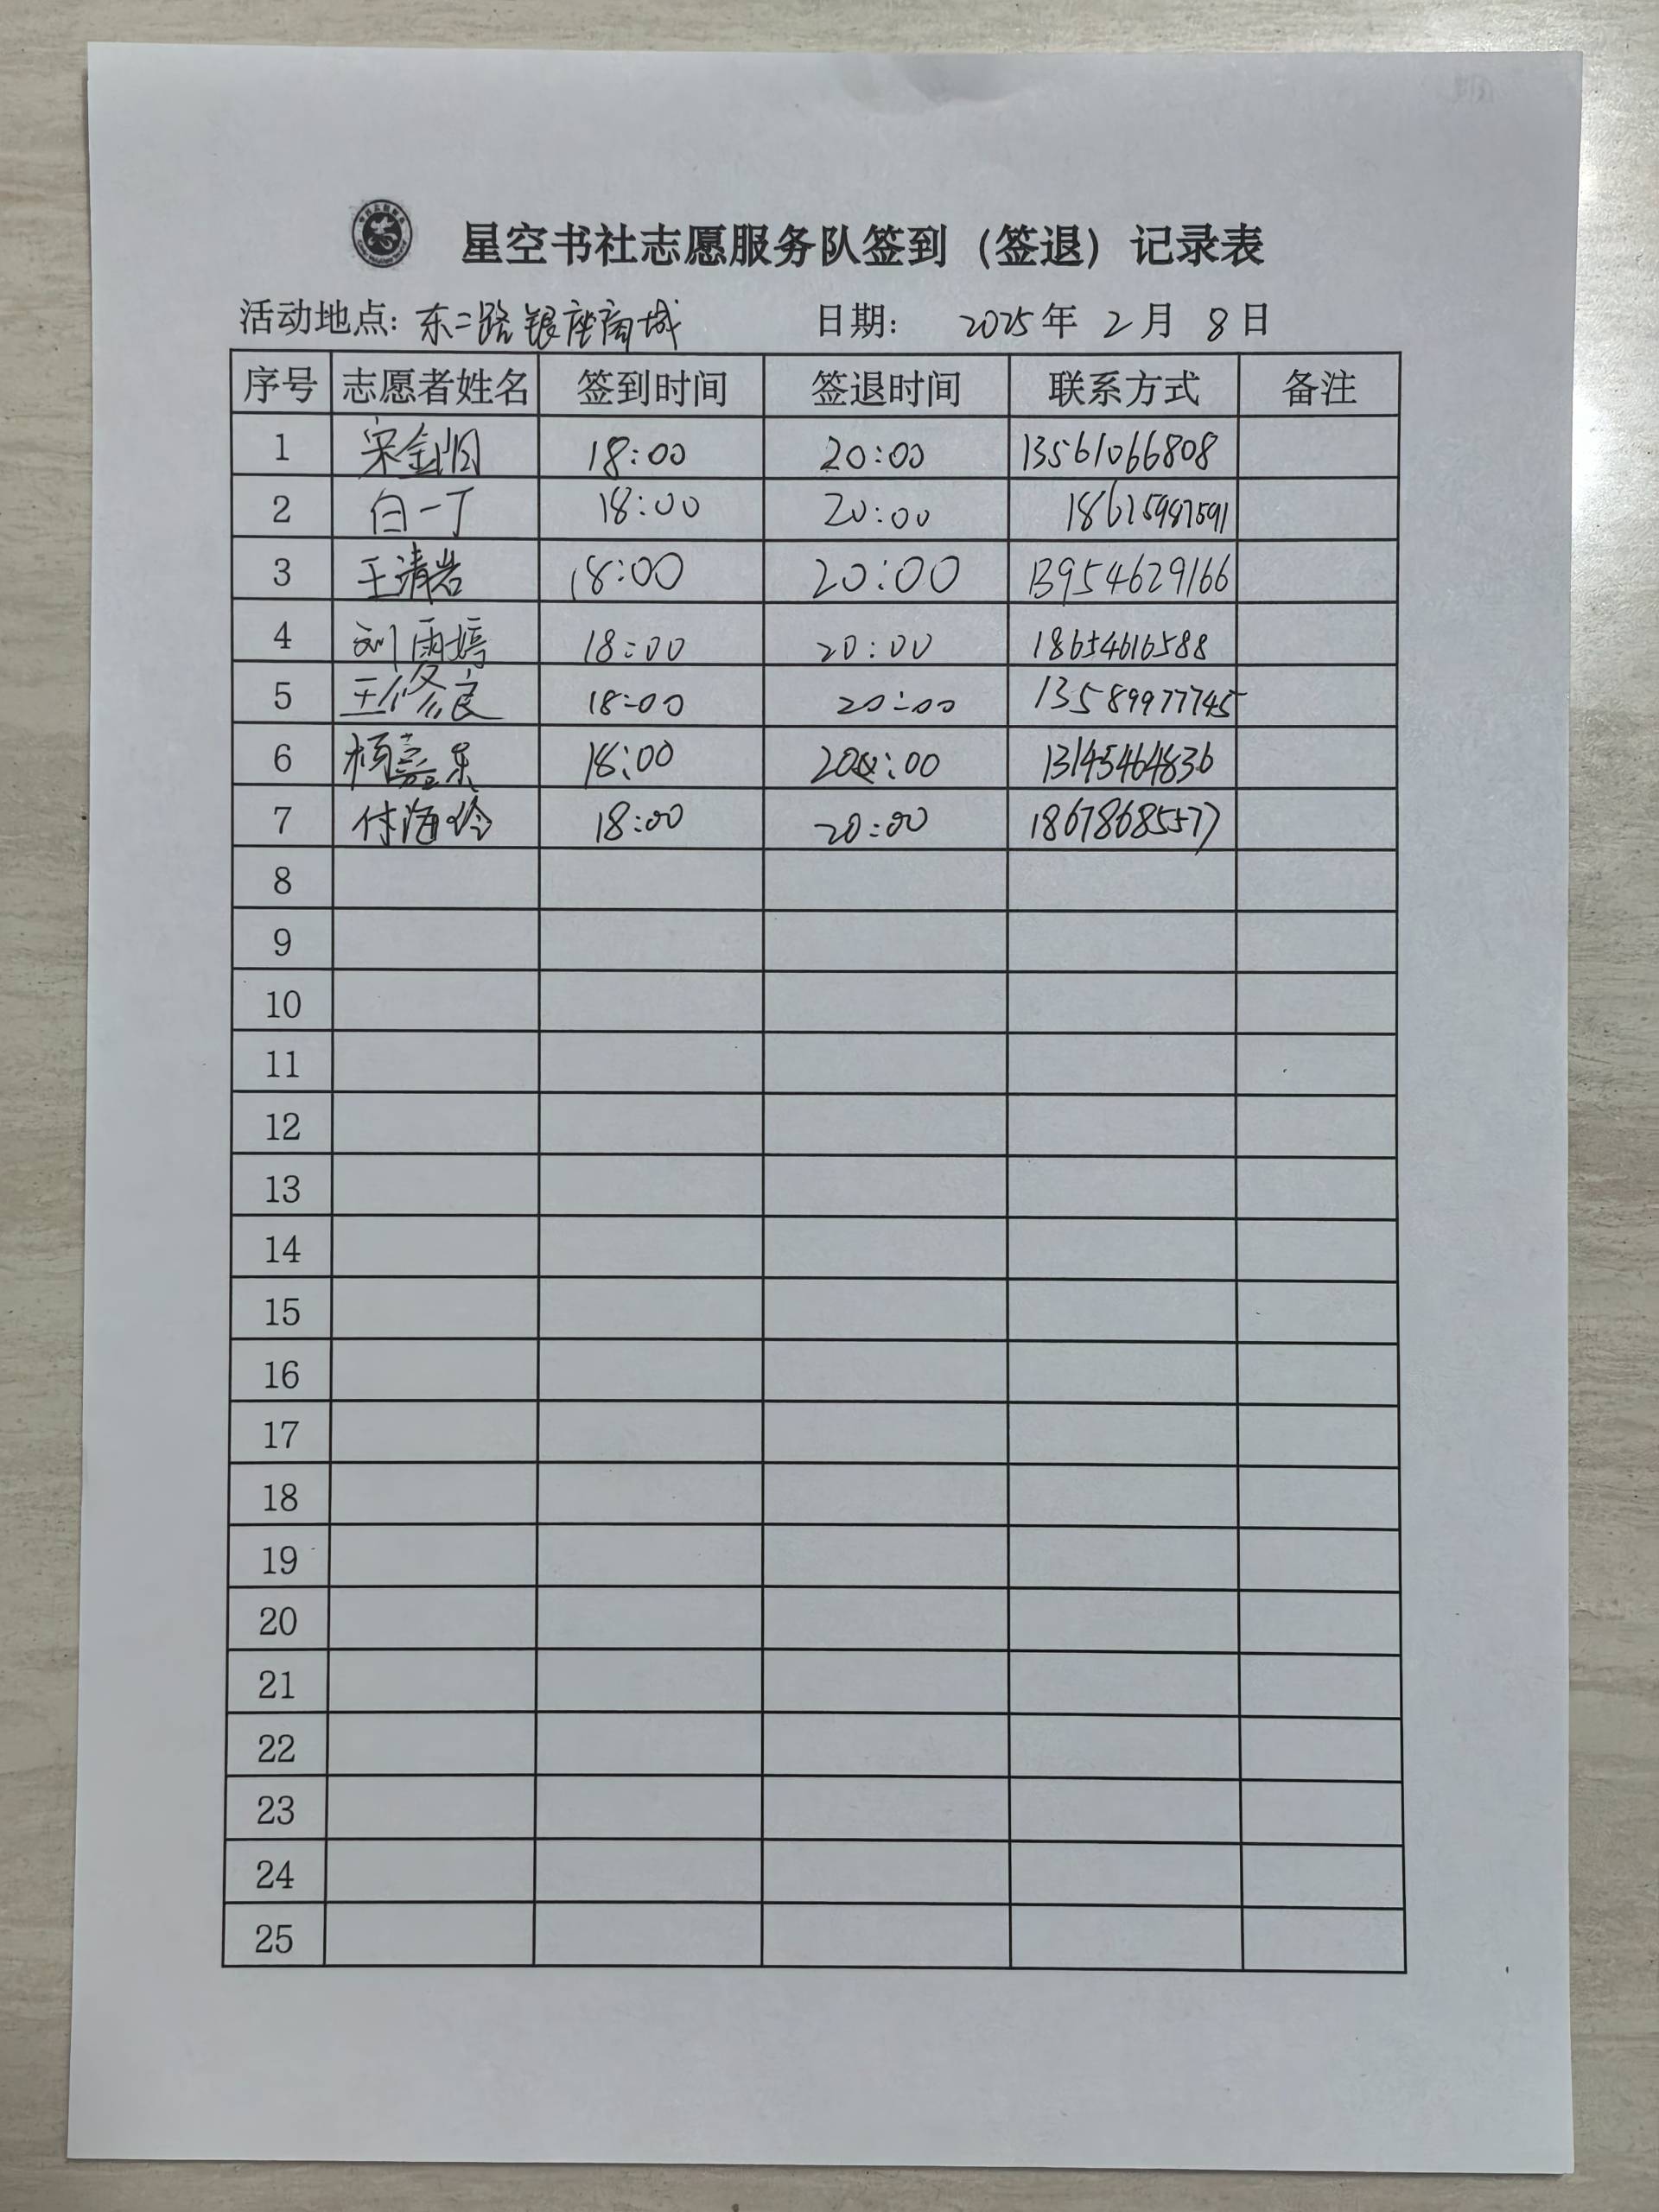 星空书社志愿服务队签到（签退）记录表
活动地点: 东二路银座商城 日期: 2025年 2月 8日
序号 志愿者姓名 签到时间 签退时间 联系方式 备注
1 18:00 20:00 13561066808
2 白一丁 18:00 20:00 18615987591
3 王清岩 18:00 20:00 13954629166
4 刘雨婷 18:00 20:00 18654616588
5 王修良 18:00 20:00 13589977745
6 杨嘉东 18:00 20:00 13145464836
7 付海玲 18:00 20:00 18678685577
8
9
10
11
12
13
14
15
16
17
18
19
20
21
22
23
24
25